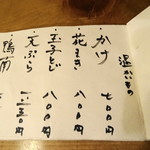 温かいもの
かけ 七〇〇円
花まき 八〇〇円
玉子とじ 八〇〇円
天ぷら 一、二五〇円
鴨南